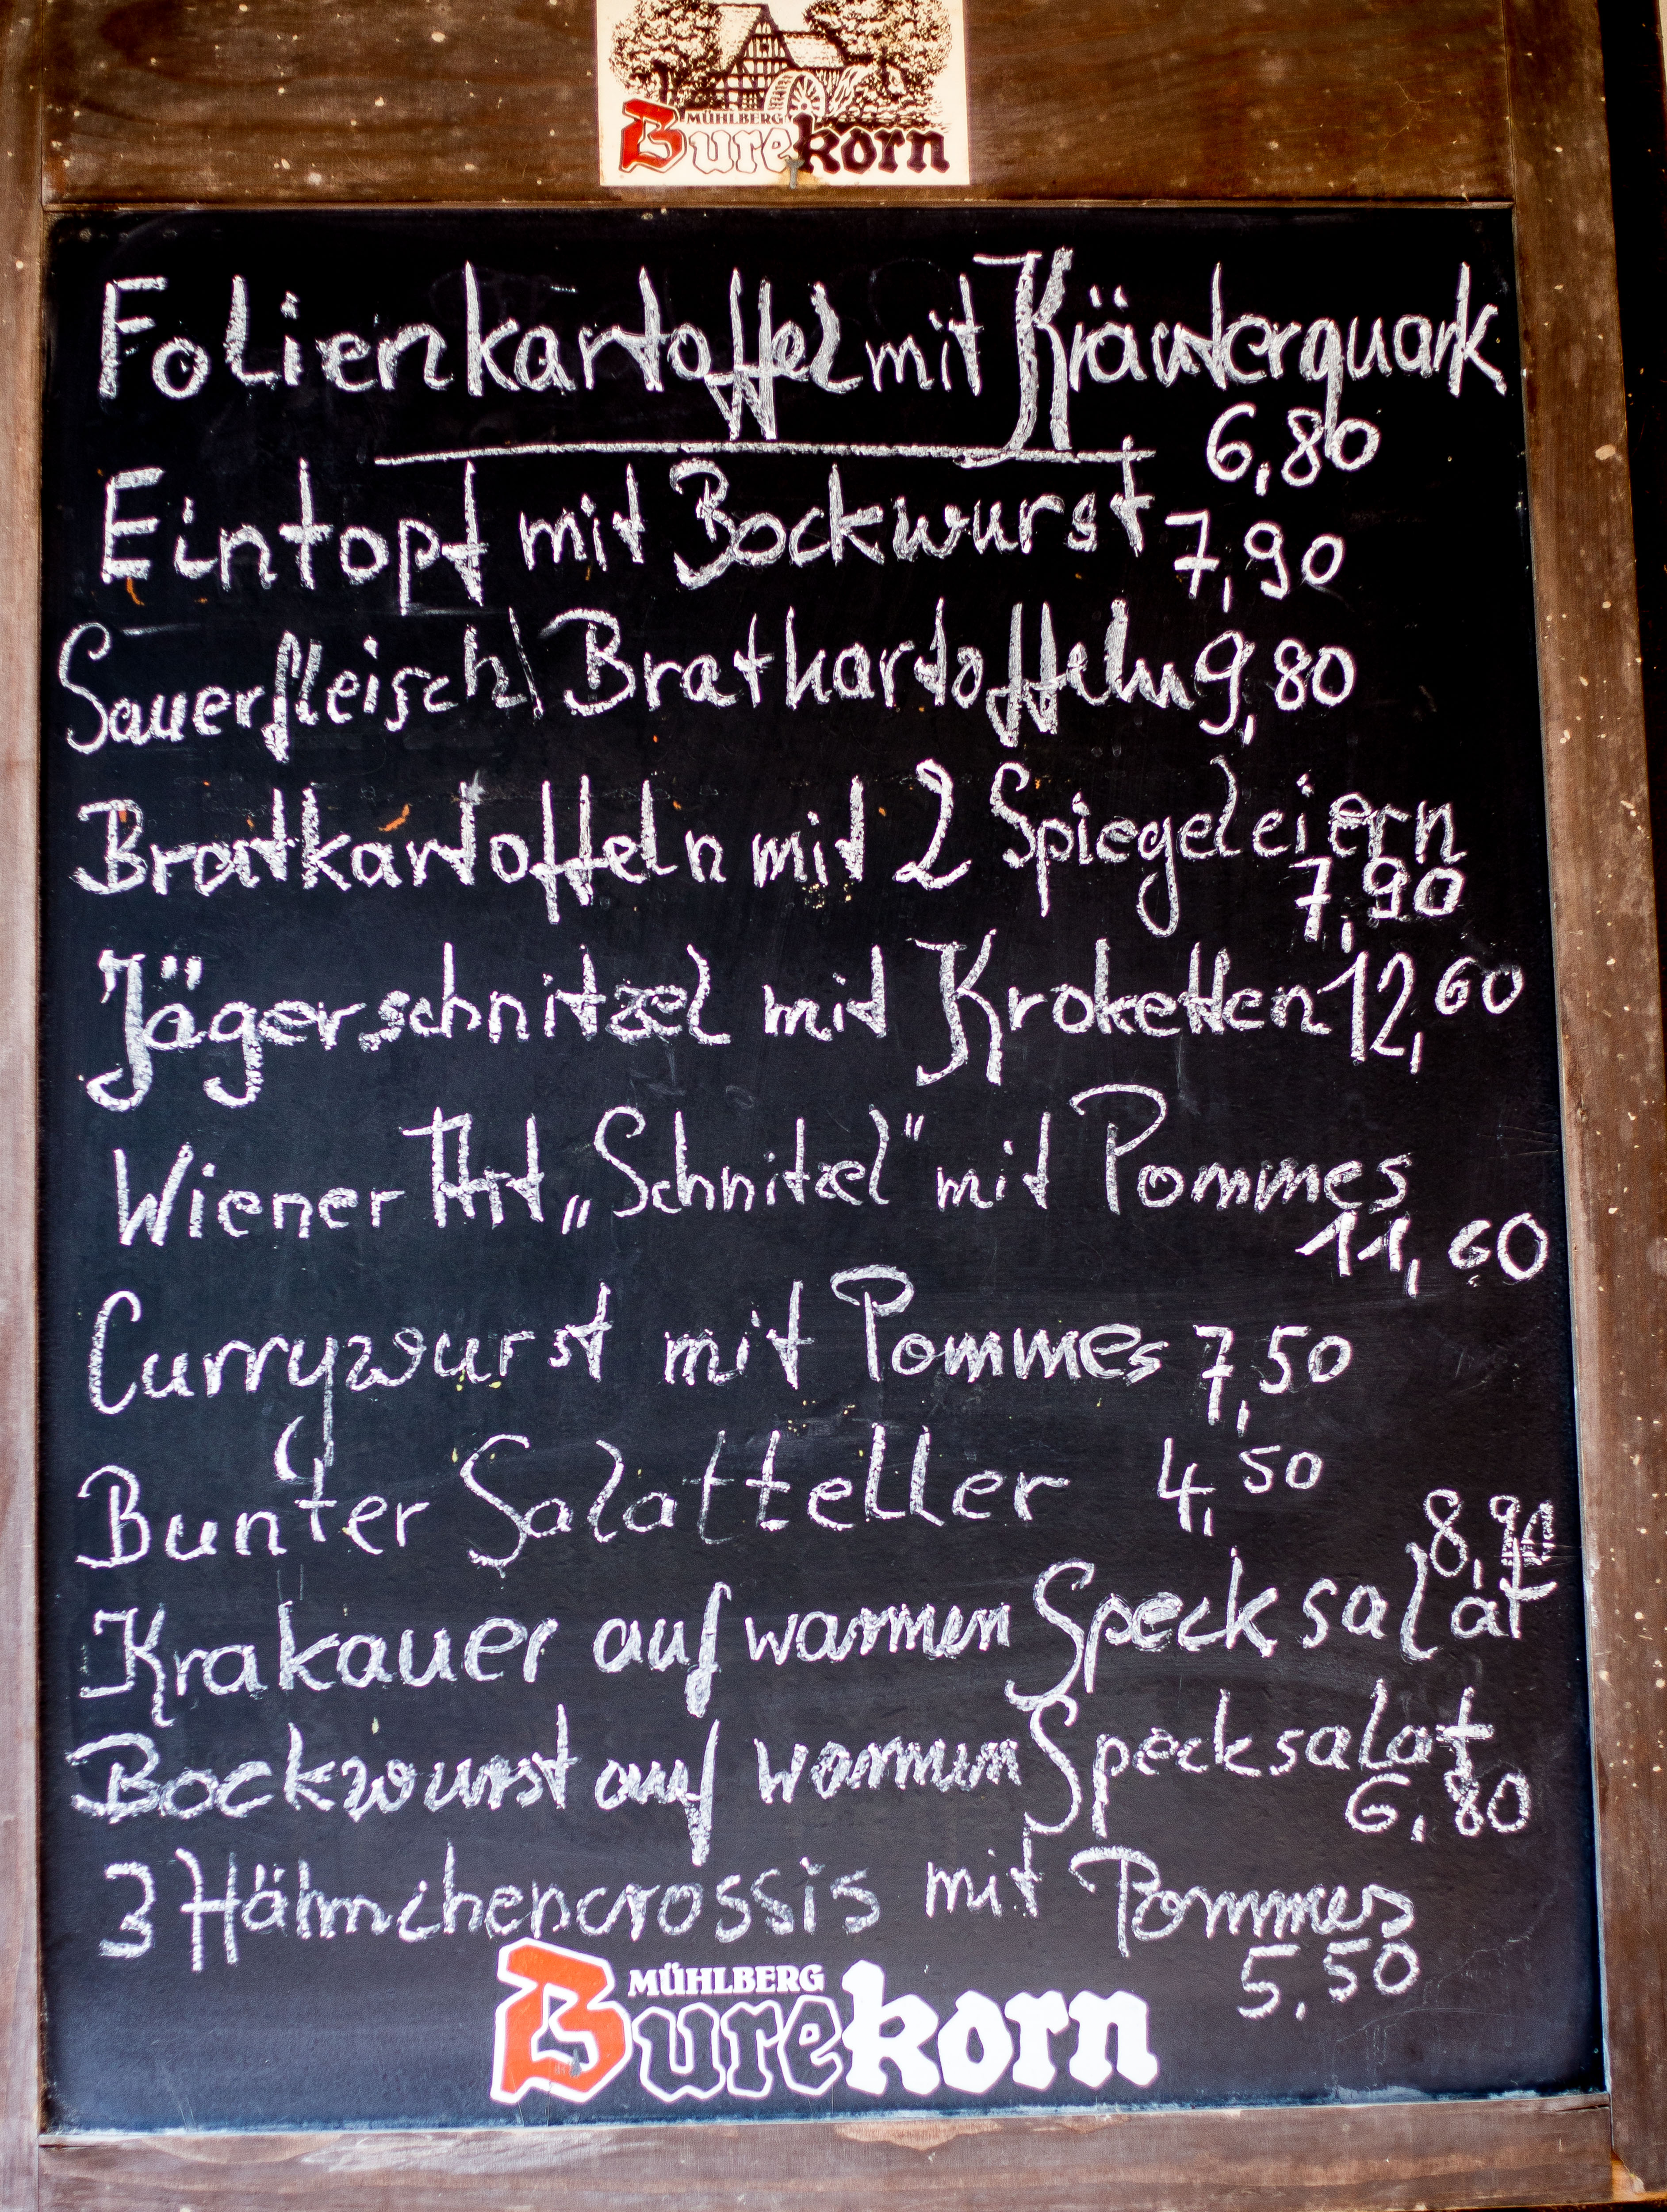 MÜHLBERG
Burekorn
Folienkartoffel mit Kräuterquark
6,80
Eintopf mit Bockwurst 7,90
Sauerfleisch/Bratkartoffeln 9,80
Bratkartoffeln mit 2 Spiegeleiern
7,90
Jägerschnitzel mit Kroketten 12,60
Wiener Art „Schnitzel" mit Pommes
11,60
Currywurst mit Pommes 7,50
Bunter Salatteller 4,50
8,90
Krakauer auf warmen Specksalat
Bockwurst auf warmen Specksalat
6,80
3 Hähnchencrossis mit Pommes
5,50
MÜHLBERG
Burekorn